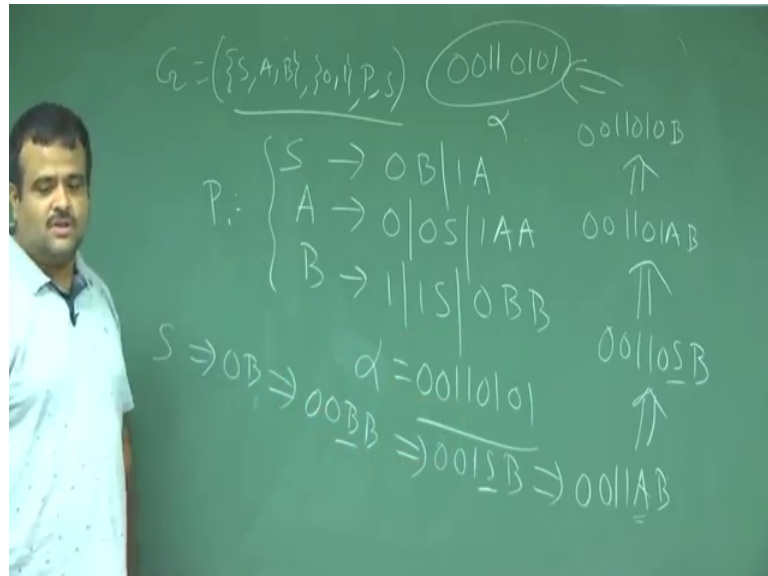 G₂ = ({S, A, B}, {0, 1}, P, S)
00110101
α
P :- { S → 0B | 1A
A → 0 | 0S | 1AA
B → 1 | 1S | 0BB
α = 00110101
S ⇒ 0B ⇒ 00BB ⇒ 001SB ⇒ 0011AB
⇑
00110SB
⇑
001101AB
⇑
0011010B
⇐